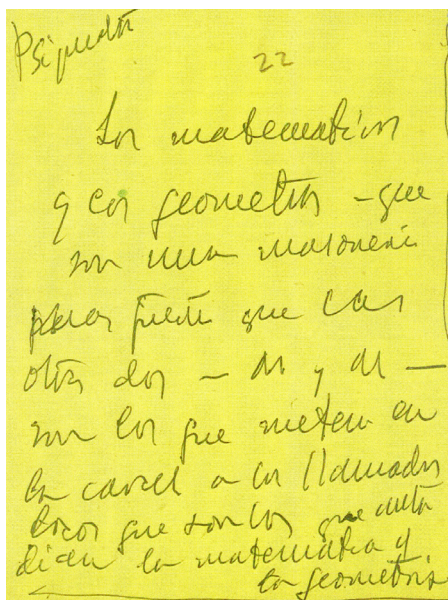 Psiquiatra
22
Los matemáticos
y los geometras - que
son una masonería
más fuerte que las
otras dos - dn y dn -
son los que meten en
la carcel a los llamados
locos que son los que
dicen la matemática y
la geometría